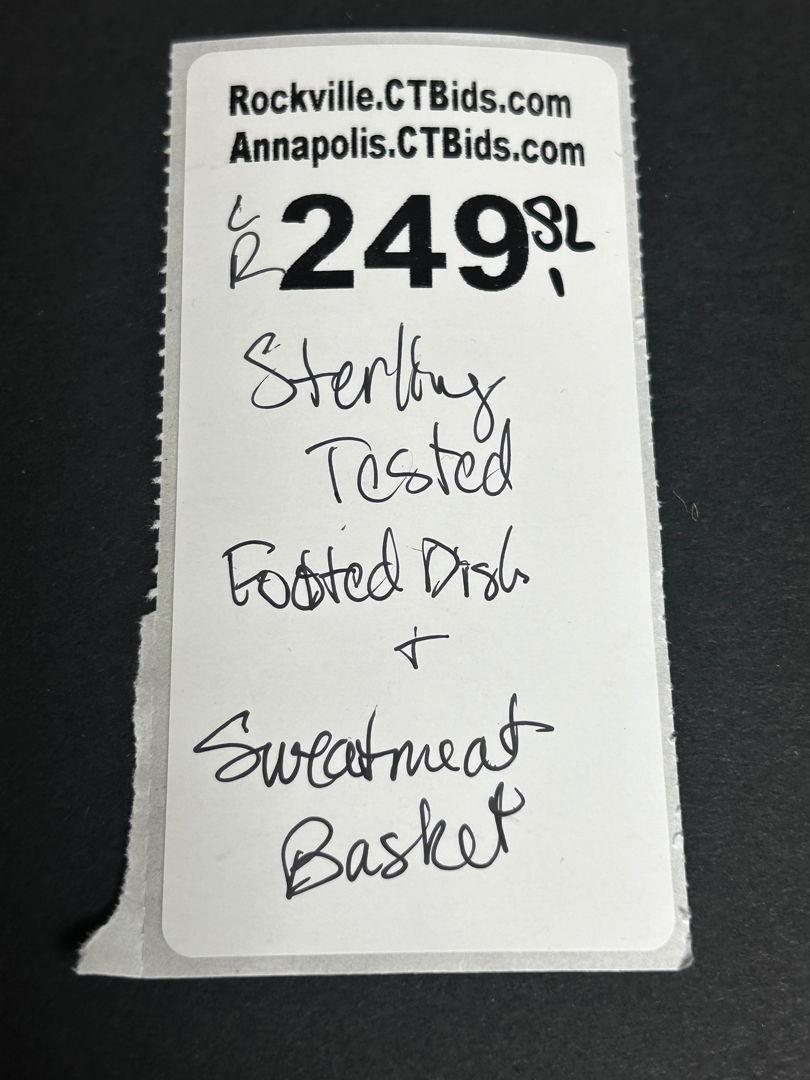 Rockville.CTBids.com
Annapolis.CTBids.com
L
R 249 SL
1
Sterling
Tested
Footed Dish
+
Sweatmeat
Basket